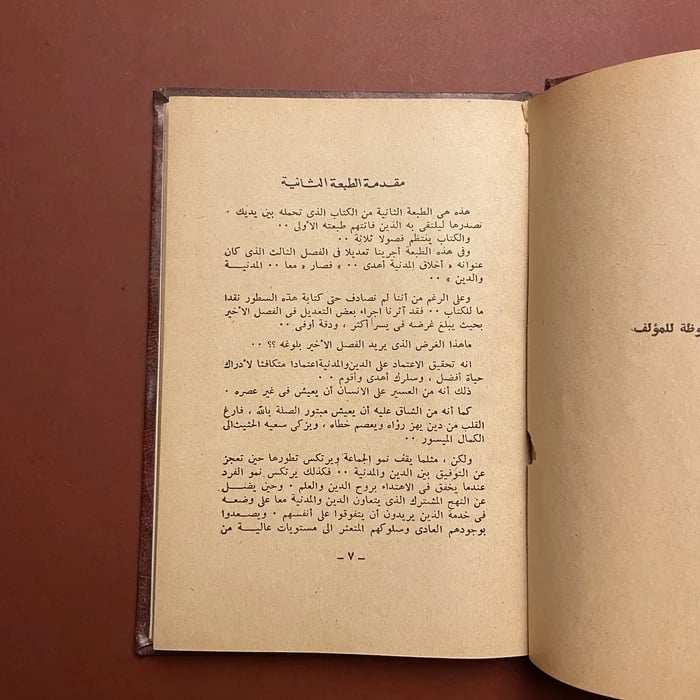 مقدمة الطبعة الثانية
هذه هى الطبعة الثانية من الكتاب الذى تحمله بين يديك ٠
نصدرها ليلتقى به الذين فاتتهم طبعته الأولى ٠٠
والكتاب ينتظم فصولا ثلاثة ٠٠
وفى هذه الطبعة أجرينا تعديلا فى الفصل الثالث الذى كان
عنوانه « أخلاق المدنية أهدى ٠٠ » فصار « معا ٠٠ المدنية
والدين »
وعلى الرغم من أننا لم نصادف حتى كتابة هذه السطور نقدا
ما للكتاب ٠٠ فقد آثرنا اجراء بعض التعديل فى الفصل الأخير
بحيث يبلغ غرضه فى يسر أكثر ، ودقة أوفى ٠٠
ماهذا الغرض الذى يريد الفصل الأخير بلوغه ؟؟ ٠٠
انه تحقيق الاعتماد على الدين والمدنية اعتمادا متكافئا لأدراك
حياة أفضل ، وسلوك أهدى وأقوم ٠٠
ذلك أنه من العسير على الانسان أن يعيش فى غير عصره ٠
كما أنه من الشاق عليه أن يعيش مبتور الصلة بالله ، فارغ
القلب من دين يهز رؤاه ويعصم خطاه ، ويزكى سعيه الحثيث الى
الكمال الميسور ٠٠
ولكن ، مثلما يقف نمو الجماعة ويرتكس تطورها حين تعجز
عن التوفيق بين الدين والمدنية ٠٠ فكذلك يرتكس نمو الفرد
عندما يخفق فى الاهتداء بروح الدين والعلم ٠ وحين يضل
عن النهج المشترك الذى يتعاون الدين والمدنية معا على وضعه
فى خدمة الذين يريدون أن يتفوقوا على أنفسهم ٠ ويصعدوا
بوجودهم العادى وسلوكهم المتعثر الى مستويات عالية من
– ٧ –
وظة للمؤلف